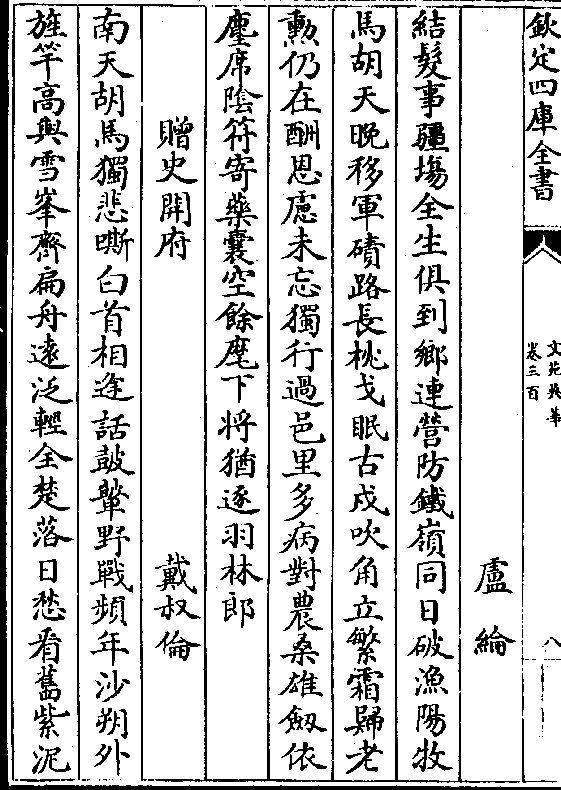 欽定四庫全書
文苑英華
卷三百
八
盧綸
結髮事疆場全生俱到鄉連營防鐵嶺同日破漁陽牧
馬胡天晚移軍磧路長枕戈眠古戍吹角立繁霜歸老
勲仍在酬恩慮未忘獨行過邑里多病對農桑雄劔依
塵席陰符寄藥囊空餘麾下将猶逐羽林郎
贈史開府
戴叔倫
南天胡馬獨悲嘶白首相逢話鼓鼙野戰頻年沙朔外
旌竿高與雪峯齊扁舟遠泛輕全楚落日愁看舊紫泥